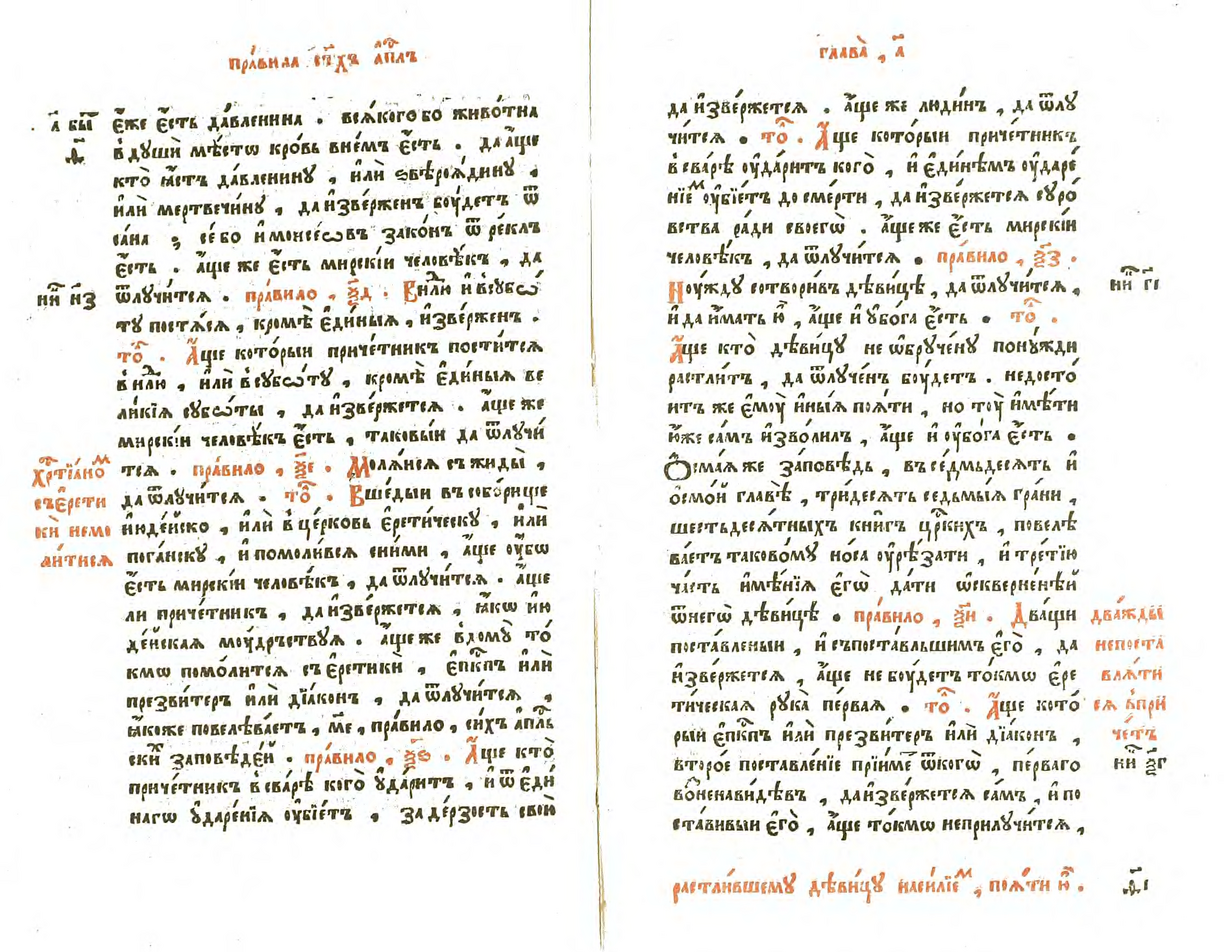 пра́вила ст҃хъ а҆пⷭ҇лъ
а҆ бы҃
є҆́же є҆́сть да́вленина . всѧ́кого бо живо́тна
в̾дꙋшѝ мѣ́стѡ кро́вь вне́мъ є҆́сть . да а҆́ще
кто̀ ꙗ҆́стъ да́вленинꙋ , и҆лѝ ѕвѣроѧ́динꙋ ,
и҆лѝ мертвечи́нꙋ , да и҆зве́рженъ бꙋ́детъ ѿ
са́на ; се́ бо и҆ моисе́ѡвъ зако́нъ ѿре́клъ
є҆́сть . а҆́ще же є҆́сть мирскі́и человѣ́къ , да
ѿлꙋчи́тсѧ . пра́вило , ѯ҃д . В̾нлⷣю и҆ в̾сꙋбѡ́
тꙋ постѧ́сѧ , кромѣ̀ є҆ди́ныѧ , и҆зве́рженъ .
то́ . А҆́ще кото́рыи приче́тникъ пости́тсѧ
в̾нлⷣю , и҆лѝ в̾сꙋбѡ́тꙋ , кромѣ̀ є҆ди́ныѧ ве
ли́кїѧ сꙋбѡ́ты , да и҆зве́ржетсѧ . а҆́ще же
мирскі́и человѣ́къ є҆́сть , таковы́и да ѿлꙋчи́
тсѧ . пра́вило , ѯ҃е . Молѧ́исѧ съ жиды̀ ,
да ѿлꙋчи́тсѧ . то́ . Вше́дыи въ собо́рище
и҆ю́де́йско , и҆лѝ в̾це́рковь є҆рети́ческꙋ , и҆лѝ
пога́нскꙋ , и҆ помоли́всѧ сни́ми , а҆́ще ᲂу҆́бѡ
є҆́сть мирскі́и человѣ́къ , да ѿлꙋчи́тсѧ . а҆́ще
ли приче́тникъ , да и҆зве́ржетсѧ , ꙗ҆́кѡ и҆ю
де́йскаѧ мꙋ́дръствꙋѧ . а҆́ще же в̾домꙋ̀ то́
кмѡ помо́литсѧ съ є҆ретикѝ , є҆пⷭ҇кпъ и҆лѝ
презви́теръ и҆лѝ дїа́конъ , да ѿлꙋчи́тсѧ ,
ꙗ҆́коже повелѣва́етъ , м҃е , пра́вило , си́хъ а҆пⷭ҇ль
ски́ заповѣ́деи . пра́вило , ѯ҃ѕ . А҆́ще кто̀
приче́тникъ в̾сва́рѣ кого̀ ᲂу҆да́ритъ , и҆ ѿ є҆ди́
нагѡ ᲂу҆даре́нїѧ ᲂу҆бїе́тъ , за де́рзость свою̀
ни҃ и҃з
хрⷭ҇тїа́ноⷨ
съ є҆рети
ки̑ не мо
ли́тисѧ
глава̀ , а҃
да и҆зве́ржетсѧ . а҆́ще же лю́динъ , да ѿлꙋ
чи́тсѧ . то́ . А҆́ще кото́рыи приче́тникъ
в̾сва́рѣ ᲂу҆да́ритъ кого̀ , и҆ є҆ди́нѣмъ ᲂу҆даре́
нїеⷨ ᲂу҆бїе́тъ до сме́рти , да и҆зве́ржетсѧ сꙋро́
вства ра́ди своегѡ̀ . а҆́ще же є҆́сть мирскі́и
человѣ́къ , да ѿлꙋчи́тсѧ . пра́вило , ѯ҃з .
Нꙋ́ждꙋ сотвори́въ дѣви́цѣ , да ѿлꙋчи́тсѧ ,
и҆ да и҆́мать ю҆̀ , а҆́ще и҆ ᲂу҆бо́га є҆́сть . то́ .
А҆́ще кто̀ дѣви́цꙋ не ѡ҆брꙋче́нꙋ понꙋ́жди
растли́тъ , да ѿлꙋче́нъ бꙋ́детъ . недосто́
итъ же є҆мꙋ̀ и҆ны́ѧ поѧ́ти , но тꙋ̀ и҆мѣ́ти
ю҆́же са́мъ и҆зво́лилъ , а҆́ще и҆ ᲂу҆бо́га є҆́сть .
Ѻ҆сма́ѧ же за́повѣдь , въ се́дмьдесѧтъ и҆
ѻ҆смо́й главѣ̀ , три́десѧть седмы́ѧ гра́ни ,
шестьдесѧ́тныхъ кни́гъ цр҃кихъ , повелѣ
ва́етъ таково́мꙋ но́са ᲂу҆рѣ́зати , и҆ тре́тїю
ча́сть и҆мѣ́нїѧ є҆гѡ̀ да́ти ѡ҆скверне́нѣй
ѿнегѡ̀ дѣви́цѣ . пра́вило , ѯ҃и . Два́щи
поста́вленыи , и҆ съпоста́вльшимъ є҆го̀ , да
и҆зве́ржетсѧ , а҆́ще не бꙋ́детъ то́кмѡ є҆ре
ти́ческаѧ рꙋка̀ пе́рваѧ . то́ . А҆́ще кото́
рыи є҆пⷭ҇кпъ и҆лѝ презви́теръ и҆лѝ дїа́конъ ,
второ́е поставле́нїе прїи́ме ѿкогѡ̀ , пе́рваго
во́ненави́дѣвъ , да и҆зве́ржетсѧ са́мъ , и҆ по
ста́вивыи є҆го̀ , а҆́ще то́кмѡ неприлꙋчи́тсѧ ,
ни҃ г҃і
два́жды
не поста
влѧ́ти
сѧ в̾при́
че́тъ
ни҃ ѯ҃г
растли́вшемꙋ дѣви́цꙋ наси́лїеⷨ , поѧ́ти ю҆̀ .